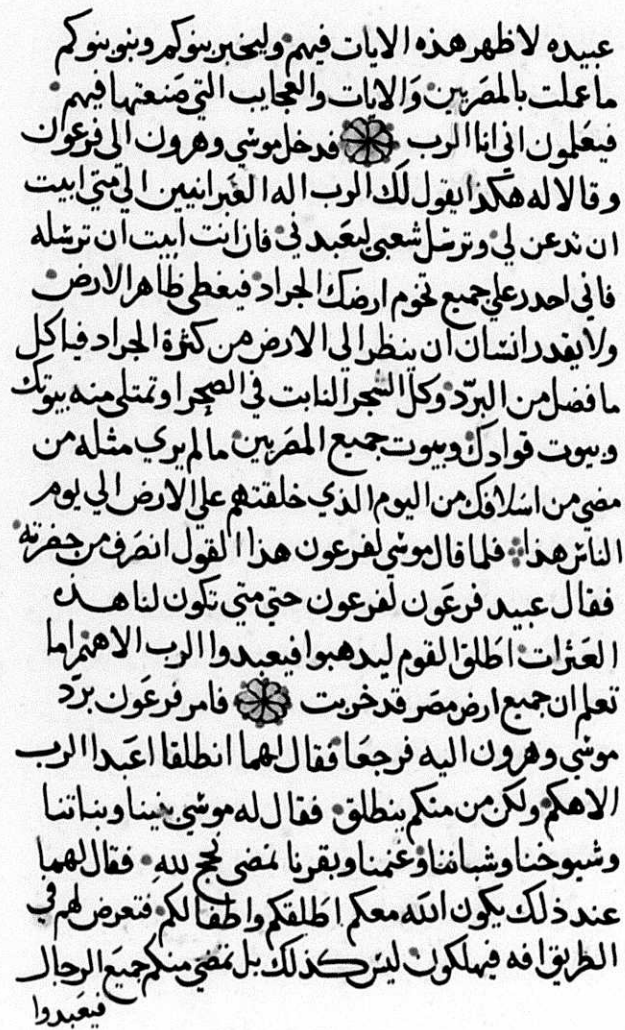 عبيده لاظهر هذه الايات فيهم وليخبر بنوكم وبنو بنوكم
ما عملت بالمصريين والايات والعجايب التي صنعتها فيهم
فيعلمون اني انا الرب فدخل موسي وهرون الي فرعون
وقالا له هكذا يقول لك الرب اله العبرانيين الي متي ابيت
ان تدعن لي وترسل شعبي ليعبدني فان انت ابيت ان ترسله
فاني احدر علي جميع تخوم ارضك الجراد فيغطي ظاهر الارض
ولا يقدر انسان ان ينظر الي الارض من كثرة الجراد فياكل
ما فضل من البرد وكل الشجر النابت في الصحرا وتمتلي منه بيوتك
وبيوت قوادك وبيوت جميع المصريين ما لم يري مثله من
مضي من اسلافك من اليوم الذي خلقتهم علي الارض الي يوم
الناس هذا فلما قال موسي لفرعون هذا القول انصرف من حضرته
فقال عبيد فرعون لفرعون حتي متي تكون لنا هذه
العثرات اطلق القوم ليدهبوا فيعبدوا الرب الاههم اما
تعلم ان جميع ارض مصر قد خربت فامر فرعون برد
موسي وهرون اليه فرجعا فقال لهما انطلقا اعبدا الرب
الاهكم ولكن من منكم ينطلق فقال له موسي بنينا وبناتنا
وشيوخنا وشباننا وغنمنا وبقرنا نمضي نحج لله فقال لهما
عند ذلك يكون الله معكم اطلقكم واطفالكم فتعرض لهم في
الطريق افه فيهلكون ليس كذلك بل نمضي منكم جميع الرجال
فيعبدوا